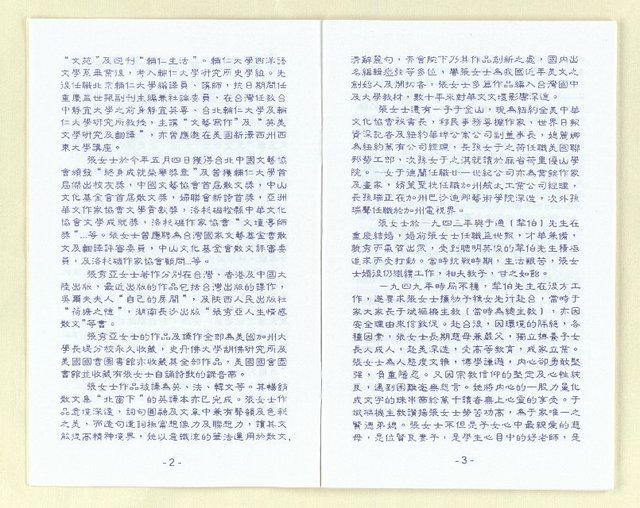 "文苑"及週刊"輔仁生活"。輔仁大學西洋語
文學系畢業後，考入輔仁大學研究所史學組。先
後任職北京輔仁大學編譯員、講師，抗日期間任
重慶益世報副刊主編兼社論委員，在台灣任教台
中靜宜大學之前身靜宜英專、台北輔仁大學及輔
仁大學研究所教授，主講"文藝寫作"及"英美
文學研究及翻譯"，亦曾應邀在美國新澤西州西
東大學講座。
張女士於今年五月四日獲得台北中國文藝協
會頒發"終身成就榮譽獎"及曾獲輔仁大學首
屆傑出校友獎，中國文藝協會首屆散文獎，中山
文化基金會首屆散文獎，婦聯會新詩首獎，亞洲
華文作家協會文學貢獻獎，洛杉磯橙縣中華文化
協會文學成就獎，洛杉磯作家協會"文壇導師
獎"…等。張女士曾應聘為台灣國家文藝基金會散
文及翻譯評審委員，中山文化基金會散文評審委
員，及洛杉磯作家協會顧問…等。
張秀亞女士著作分別在台灣、香港及中國大
陸出版，最近出版的作品包括台灣出版的譯作，
吳爾夫夫人"自己的房間"，及陝西人民出版社
"荷塘之憶"，湖南長沙出版"張秀亞人生情感
散文"等書。
張秀亞女士的作品及譯作全部為美國加州大
學長堤分校永久收藏，史丹佛大學胡佛研究所及
美國國會圖書館亦收藏其全部作品，美國國會圖
書館並收藏有張女士自誦詩歌的錄音帶。
張女士作品被譯為英、法、韓文等。其暢銷
散文集"北窗下"的英譯本亦已完成。張女士作
品意境深遠，詞句圓融及文章中兼有聲韻及色彩
之美，而造句遣詞極富想像力及聯想力，讀其文
能提高精神境界，她以意識流的筆法運用於散文，
- 2 -
清辭麗句，亦會院下乃其作品創新之處，國內出
名編輯症弦等多位，譽張女士為我國近年美文之
創始人及開拓者。張女士多篇作品編入台灣國中
及大學教材，數十年來對華文文壇影響深遠。
張女士遺有一子于金山，現為紐約全美中華
文化協會秘書長，移民事務專欄作家、世界日報
資深記者及紐約華埠公寓公司副董事長，媳葉娜
為紐約萬有公司經理，長孫女于之荷任職美國聯
邦勞工部，次孫女于之淇就讀於麻省荷里優山學
院。一女于德蘭任職廿一世紀公司亦為業餘作家
及畫家，婿葉聖桄任職加州航太工業公司經理，
長孫瑞正在加州巴沙迪那藝術學院深造，次外孫
瑞聲任職於加州電視界。
張女士於一九四三年與于通（犂伯）先生在
重慶結婚，婚前張女士任職益世報，才華兼備，
脫穎而氣質出眾，受到聰明英俊的犂伯先生積極
追求而受打動。當時抗戰時期，生活艱苦，張女
士婚後仍繼續工作，相夫教子，甘之如飴。
一九四九年時局不穩，犂伯先生在後方工
作，遂要求張女士攜幼子稚女先行赴台，當時于
家大家長于斌樞機主教（當時為總主教），亦因
安全理由來信敦促。赴台後，因環境的隔絕，各
種因素，張女士長期慈母兼嚴父，獨立撫養子女
長大成人，赴美深造，受高等教育，成家立業。
張女士為人態度文雅，博學謙遜，內心卻勇敢堅
強，負重隱忍。又因宗教信仰的堅定及心性耿
良，遇到困難毫無怨言。她將內心的一股力量化
成文字的珠串帶給萬千讀者無上心靈的享受。于
斌樞機主教讚揚張女士勞苦功高，為于家唯一之
賢德弟媳。張女士不但是子女心中最親愛的慈
母，是位賢良妻子，是學生心目中的好老師，是
- 3 -